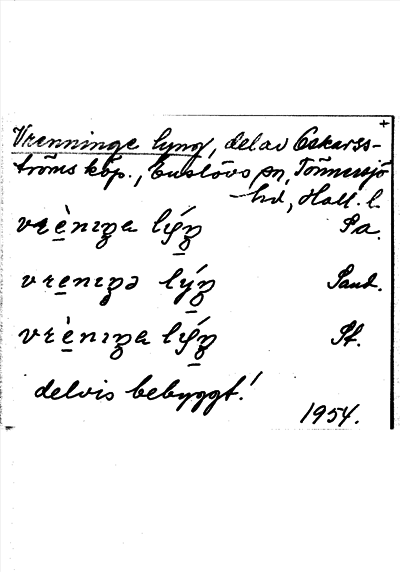 +
Vrenninge lyng, del av Oskars-
ströms köp., Enslövs sn, Tönnersjö
hd, Hall. l.
vrèniŋa lýŋ Pa.
vreniŋə lýŋ Sand.
vrèniŋa lýŋ Pf.
delvis bebyggt!
1954.